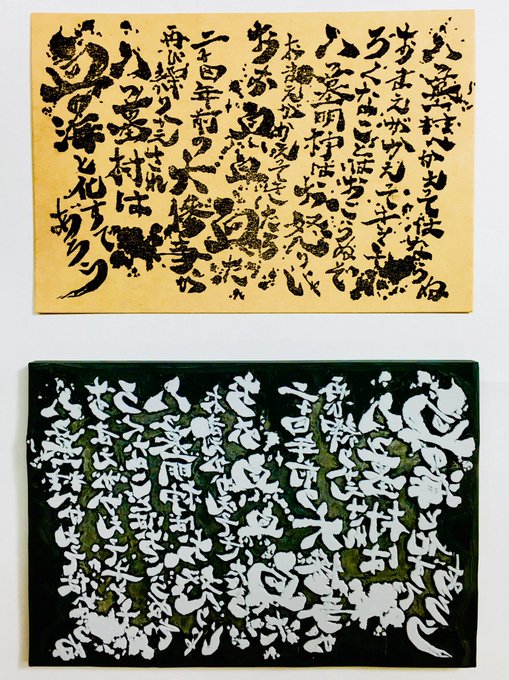 八つ墓村へかえってはならぬ
おまえがかえってきても
ろくなことはおこらぬぞ
八つ墓明神はお怒りじゃ
おまえがかえってきたら
おお 血 血 血だ
二十四年前の大惨事が
再び繰りかえされ
八つ墓村は
血の海と化すで
あろう